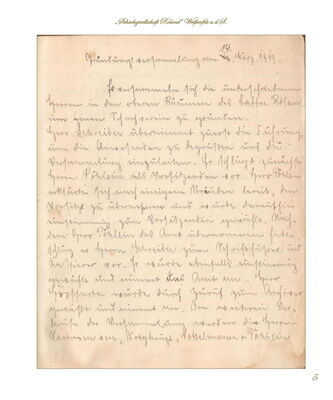 „Schachgesellschaft Roland“ Weißenfels a.d.S.
14.
Gründungsversammlung am März 1919.
Es versammeln sich die unterzeichneten
Herren in den oberen Räumen des Kaffee Roland
um einen Schachverein zu gründen.
Herr Schreiber übernimmt zuerst die Führung,
um die Anwesenden zu begrüßen und die
Versammlung einzuleiten. Er schlägt zunächst
Herrn als Vorsitzenden vor. Herr
erklärte sich nach einigem Sträuben bereit, den
Vorsitz zu übernehmen und wurde daraufhin
einstimmig zum Vorsitzenden gewählt. Nach-
dem Herr das Amt übernommen hatte
schlug er Herrn Schreiber zum Schriftführer und
Kassierer vor. Er wurde ebenfalls einstimmig
gewählt und nimmt das Amt an. Herr
wurde durch Zuruf zum
gewählt und nimmt an. Im weiteren Ver-
laufe der Versammlung werden die Herren
5